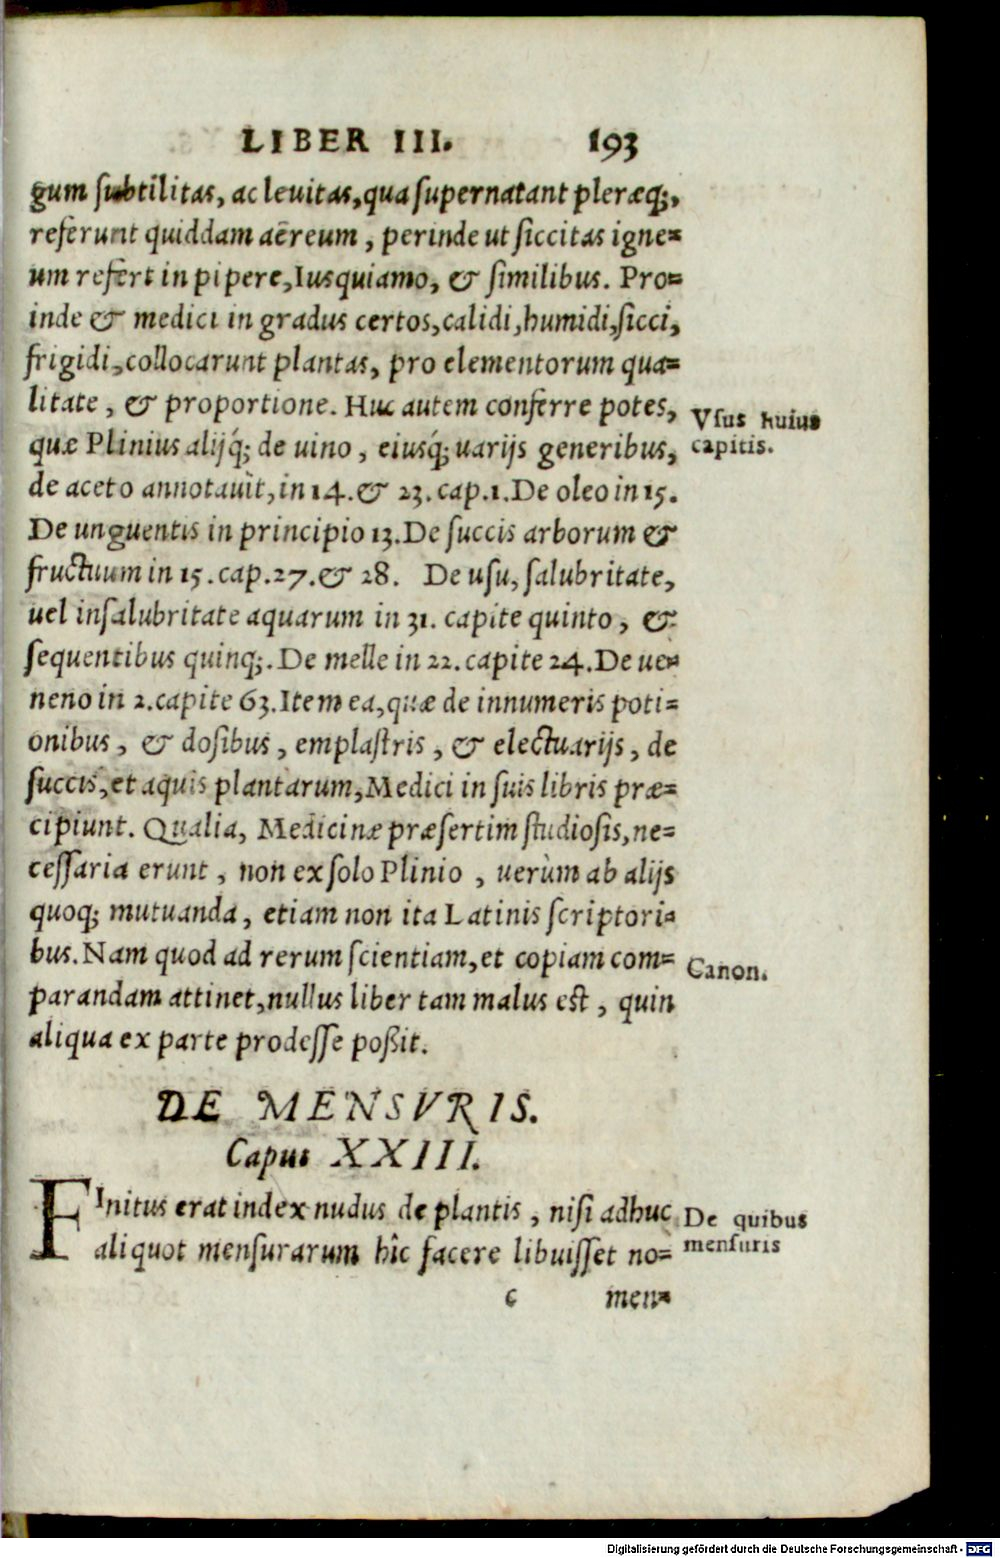 LIBER III. 193
gum ſubtilitas, ac leuitas, qua ſupernatant pleræq;,
referunt quiddam aëreum, perinde ut ſiccitas igne=
um refert in pipere, Iusquiamo, & ſimilibus. Pro=
inde & medici in gradus certos, calidi, humidi, ſicci,
frigidi, collocarunt plantas, pro elementorum qua=
litate, & proportione. Huc autem conferre potes,
Vſus huius
capitis.
quæ Plinius alijq́; de uino, eiusq́; uarijs generibus,
de aceto annotauit, in 14. & 23. cap. 1. De oleo in 15.
De unguentis in principio 13. De ſuccis arborum &
fructuum in 15. cap. 27. & 28. De uſu, ſalubritate,
uel inſalubritate aquarum in 31. capite quinto, &
ſequentibus quinq;. De melle in 22. capite 24. De ue=
neno in 2. capite 63. Item ea, quæ de innumeris poti=
onibus, & doſibus, emplaſtris, & electuarijs, de
ſuccis, et aquis plantarum, Medici in ſuis libris præ=
cipiunt. Qualia, Medicinæ præſertim ſtudioſis, ne=
ceſſaria erunt, non ex ſolo Plinio, uerùm ab alijs
quoq; mutuanda, etiam non ita Latinis ſcriptori=
bus. Nam quod ad rerum ſcientiam, et copiam com=
Canon.
parandam attinet, nullus liber tam malus eſt, quin
aliqua ex parte prodeſſe poßit.
DE MENSVRIS.
Caput XXIII.
FInitus erat index nudus de plantis, niſi adhuc
De quibus
menſuris
aliquot menſurarum hîc facere libuiſſet no=
c men=
Digitalisierung gefördert durch die Deutsche Forschungsgemeinschaft - DFG